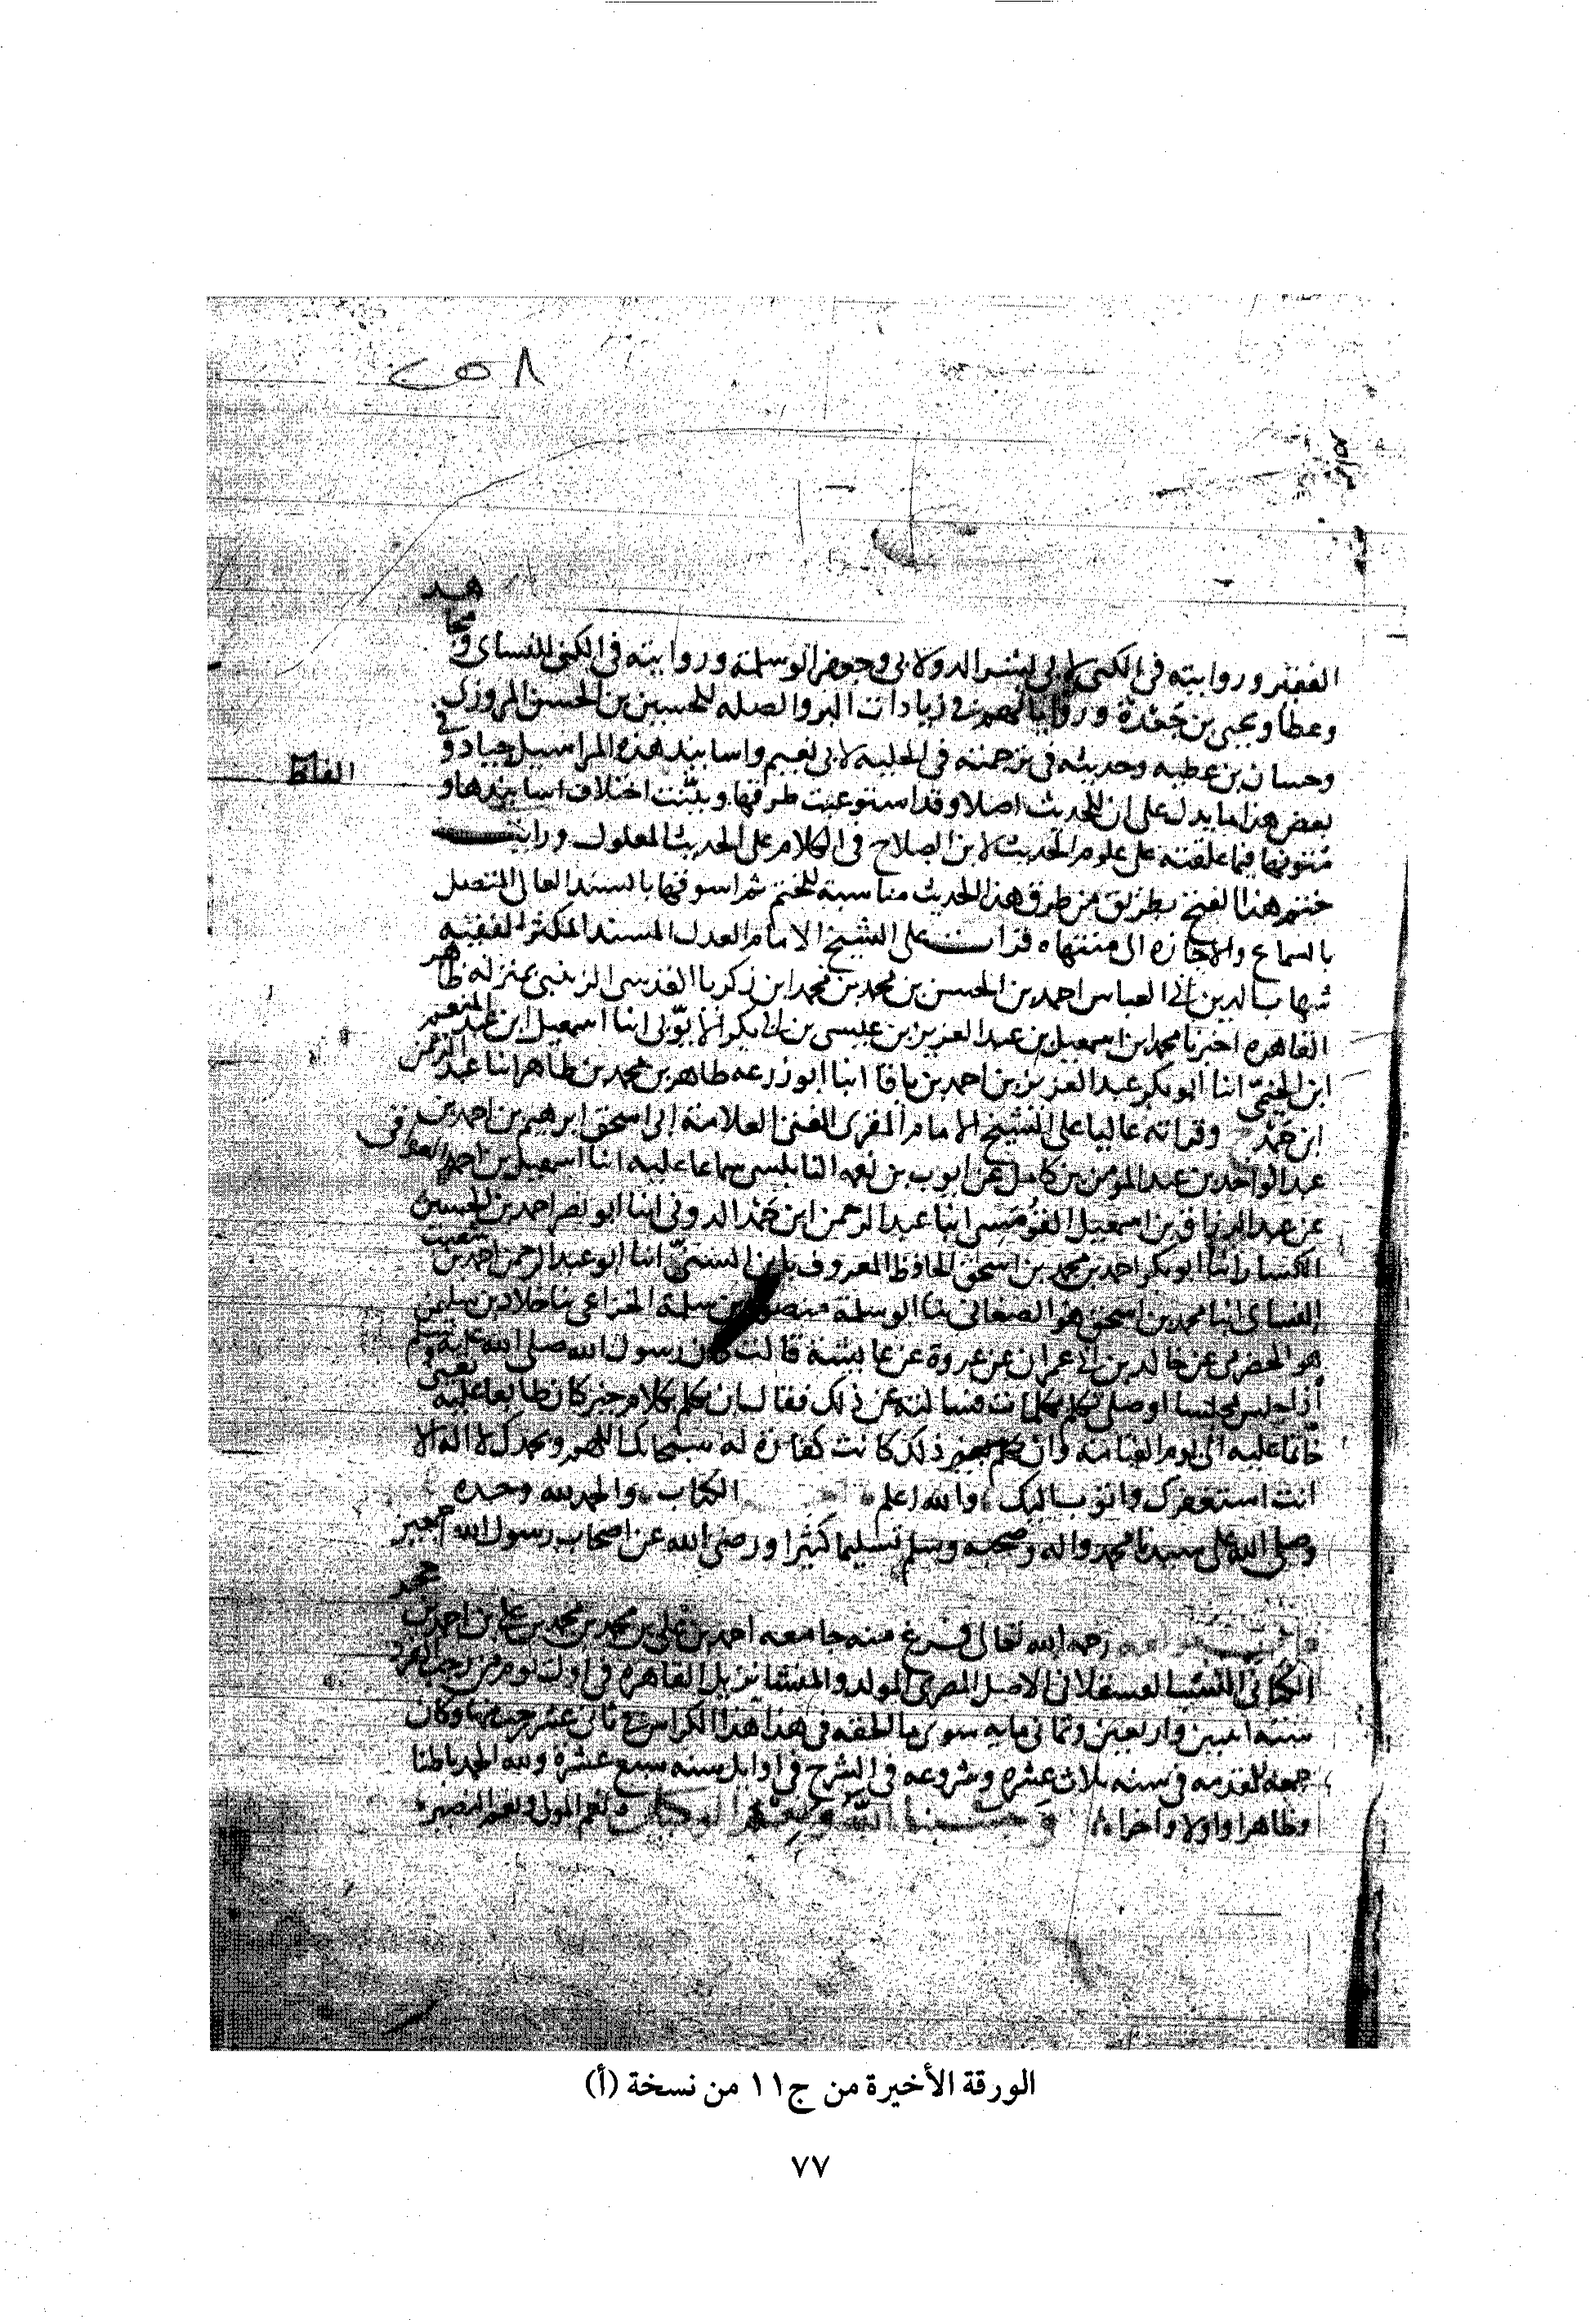 الفقير وروايته في الكنى لابي بشر الدولابي وجعفر ابو سلمة وروايته في الكنى للنساى ومجاهد
وعطا ويحيى بن جعدة وروايتهم في زيادات البر والصله للحسين بن الحسن المروزى
وحسان بن عطيه وحديثه في ترجمته في الحليه لابي نعيم واسانيد هذه المراسيل جياد وفي
بعض هذا ما يدل على ان للحديث اصلا وقد استوعبت طرقها وبيّنت اختلاف اسانيدها و الفاظ
متونها فيما علقته على علوم الحديث لابن الصلاح في الكلام على الحديث المعلول ورايت
ختم هذا الفتح بطريق من طرق هذا الحديث مناسبة للختم ثم اسوقها بالسند العالي المتصل
بالسماع والاجازه الى منتهاه قرات على الشيخ الامام العدل المسند المكثر الفقيه
شهاب الدين ابي العباس احمد بن الحسن بن محمد بن محمد ابن زكريا القدسي الزينبي بمنزله ظاهر
القاهره اخبرنا محمد ابن اسمعيل بن عبد العزيز بن عيسى بن ابي بكر الايّوبي انبا اسمعيل ابن عبد المنعم
ابن الخيمّي انبا ابو بكر عبد العزيز بن احمد بن باقا انبا ابو زرعه طاهر بن محمد بن طاهر انبا عبد الرحمن
ابن حمْد وقراته عاليا على الشيخ الامام المقرى المفتى العلامة ابي اسحق ابرهيم بن احمد بن
عبد الواحد بن عبد المؤمن بن كامل عن ايوب بن نعمه النابلسى سماعا عليه انبا اسمعيل بن احمد العراقي
عن عبد الرزاق بن اسمعيل القُومسي انبا عبد الرحمن ابن حمْد الدوني انبا ابو نصر احمد بن الحسين
الكسار انبا ابو بكر احمد بن محمد بن اسحق الحافظ المعروف بابن السنيّ انبا ابو عبد الرحمن احمد بن شعيب
النساى انبا محمد بن اسحق هو الصغاني ثنا ابو سلمة منصور بن سلمة الخزاعي ثنا خلاد بن سليمن
هو الحضرمي عن خالد بن ابي عمران عن عروة عن عايشة قالت كان رسول الله صلى الله عليه وسلم
اذا جلس مجلسا او صلى تكلم بكلمات فسالته عن ذلك فقال ان تكلم بكلام خير كان طابعا عليه يعني
خاتما عليه الى يوم القيامة وان تكلم بغير ذلك كانت كفارة له سبحانك اللهم وبحمدك لا اله الا
انت استغفرك واتوب اليك والله اعلم الكتاب والحمد لله وحده
وصلى الله على سيدنا محمد واله وصحبه وسلم تسليما كثيرا ورضي الله عن اصحاب رسول الله اجمعين
رحمه الله تعالى فرغ منه جامعه احمد بن على بن محمد بن محمد بن على بن احمد بن حجر
الكناني النسب العسقلاني الاصل المصري المولد والمنشا نزيل القاهرة في اول يوم من رجب الفرد
سنه اثنين واربعين وثماني مايه سوى ما الحقه في هذا الكراس في ثاني عشر رجب منها وكان
جمعه للمقدمه في سنه ثلاث عشره وشروعه في الشرح في اوايل سنه سبع عشرة ولله الحمد باطنا
وظاهرا واولا واخرا وحسبنا الله ونعم الوكيل ونعم المولى ونعم النصير
الورقة الأخيرة من ج١١ من نسخة (أ)
٧٧